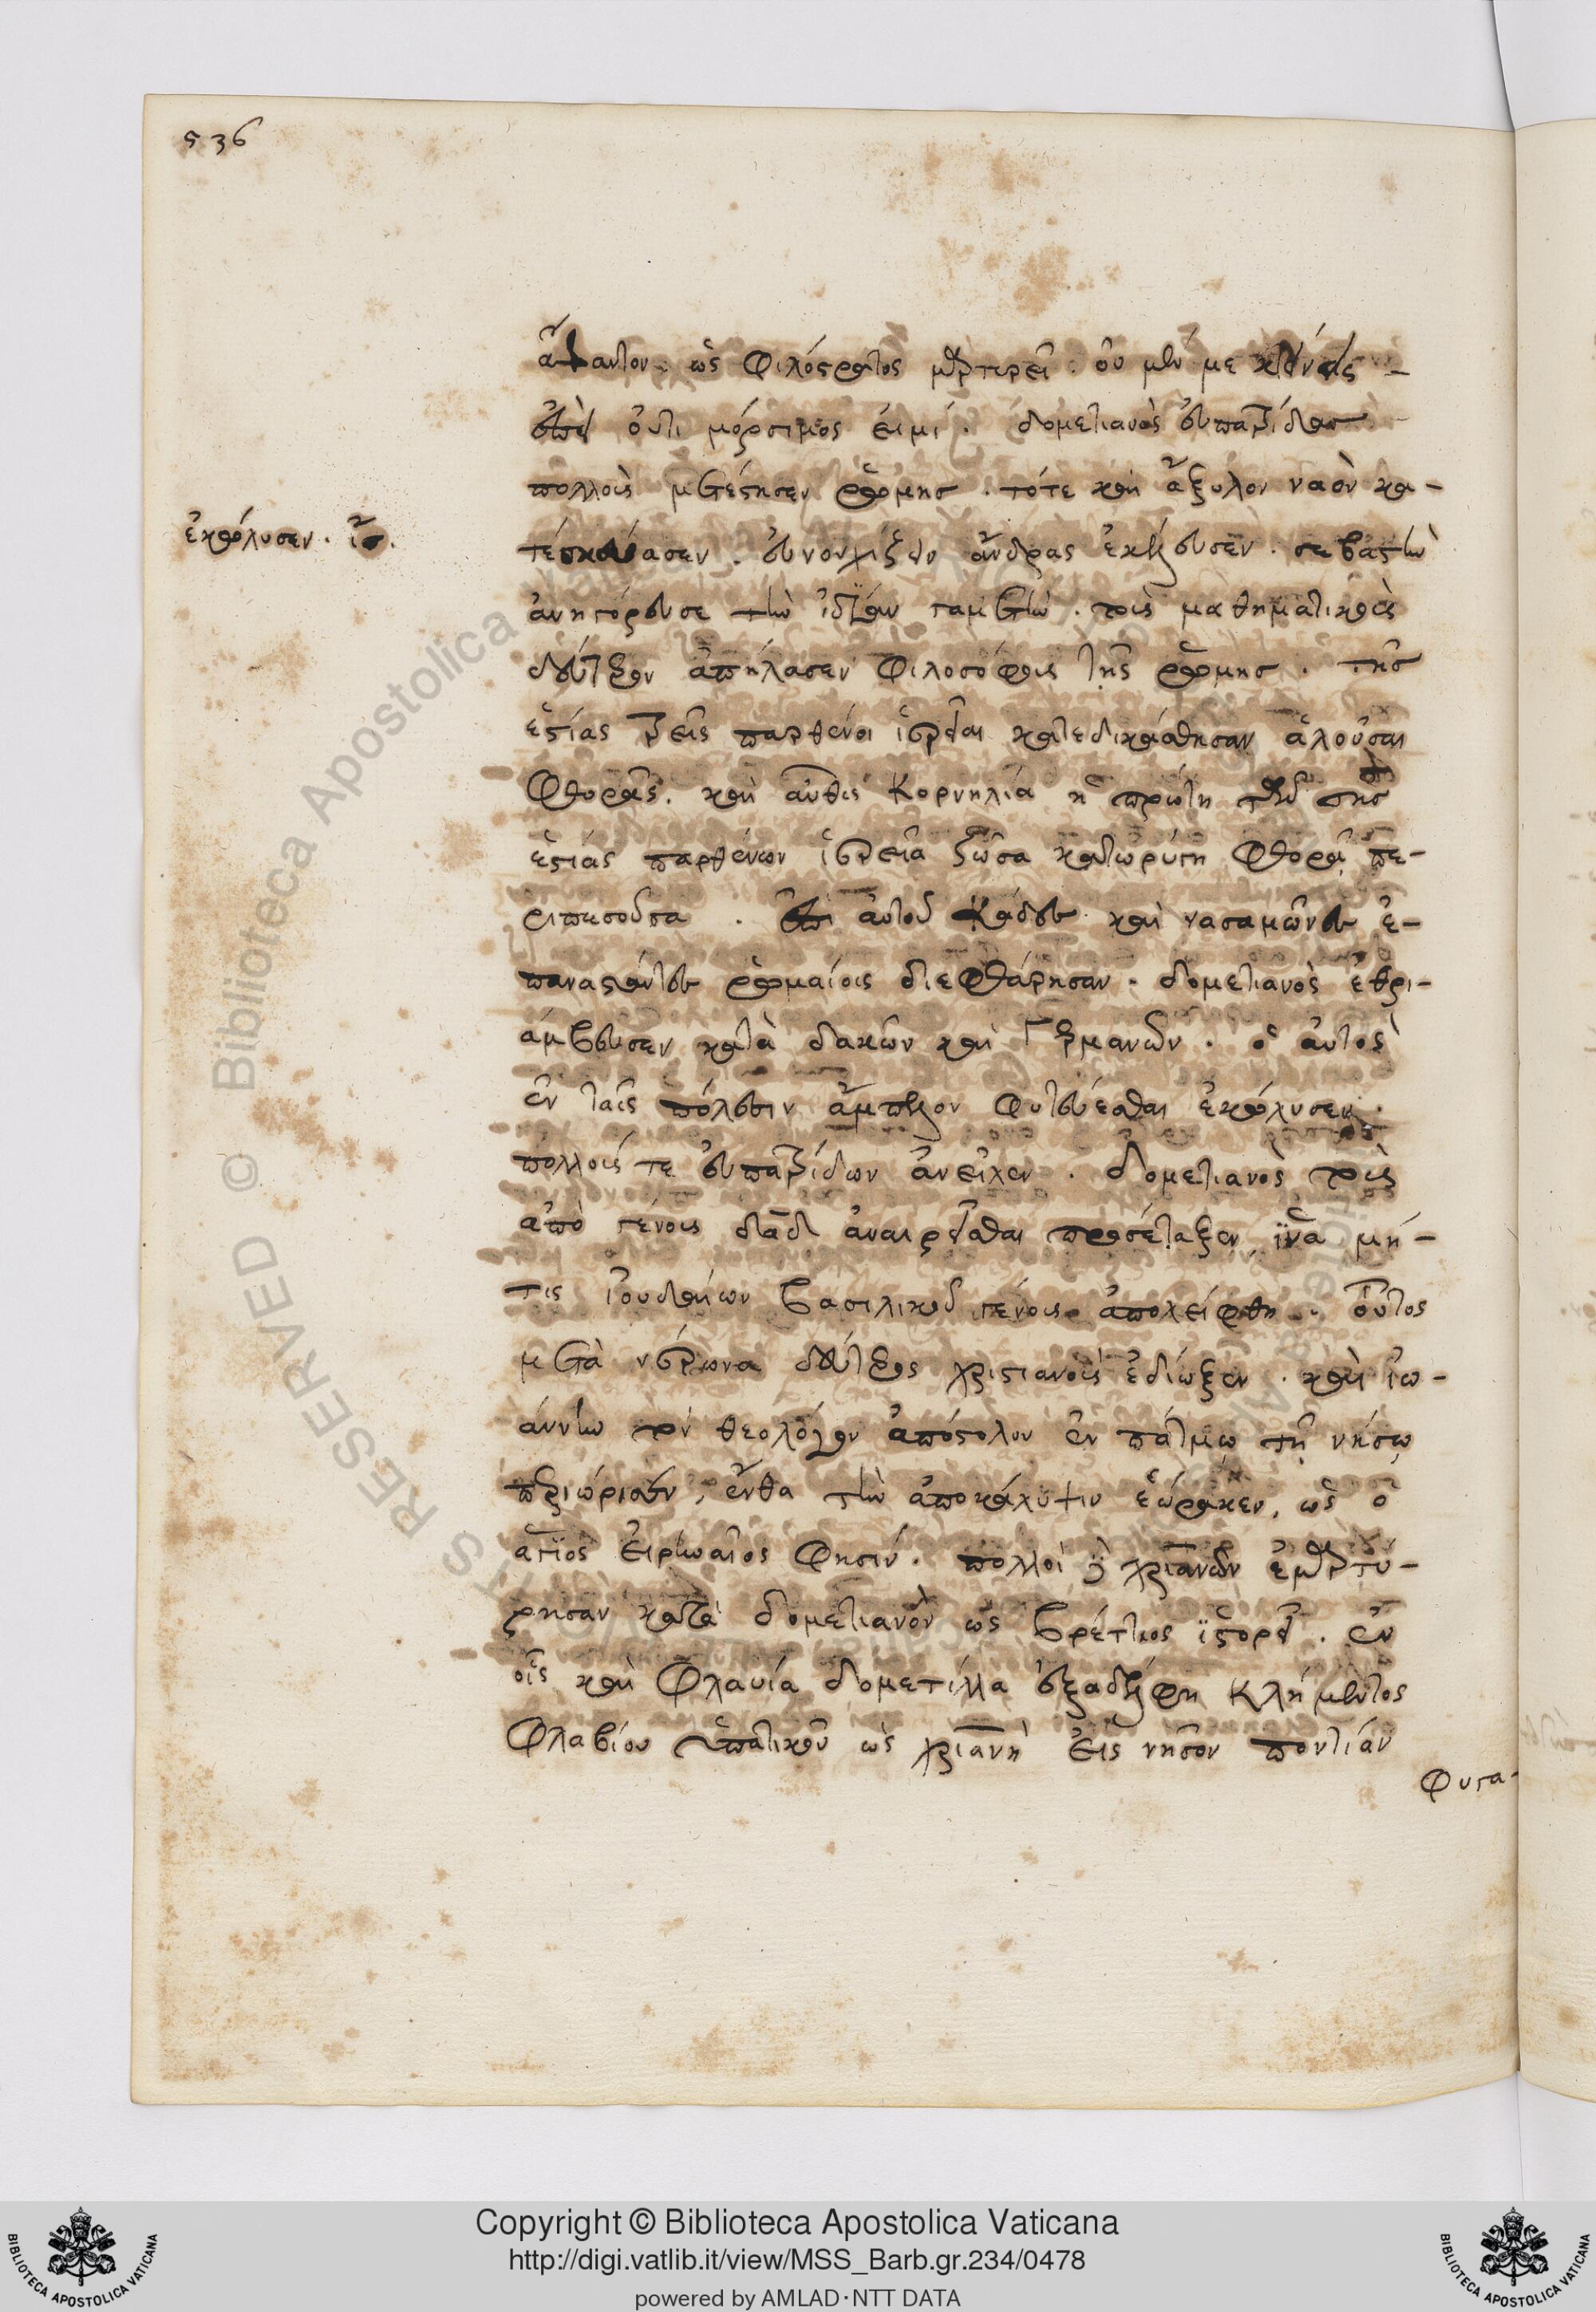 536
ἄφαντον. ὡς Φιλόστρατος μαρτυρεῖ. οὐ μὲν με κτενεῖς
ἐπεὶ οὔτι μόρσιμος εἰμί. δομετιανὸς εὐπατρίδας
πολλοὺς μετέστησεν ῥώμης. τότε καὶ ἄξυλον ναὸν κα-
ἐκώλυσεν. ἴσ.
τεσκεύασεν. εὐνουχίζειν ἄνδρας ἐκέλευσεν. σεβαστὴν
ἀνηγόρευσε τὴν ἰδίαν γαμετὴν. τοὺς μαθηματικοὺς
δεύτερον ἀπήλασεν φιλοσόφους τῆς ῥώμης. τῆς
ἑστίας τρεῖς παρθένοι ἱέρειαι κατεδικάσθησαν ἁλοῦσαι
Φθορᾶς. καὶ αὖθις Κορνηλία ἡ πρώτη τῶν τῆς
ἑστίας παρθένων ἱέρεια ζῶσα κατωρύγη φθορᾷ πε-
ριπεσοῦσα. ἐπὶ αὐτοῦ Κάδες καὶ νασαμῶνες ἐ-
παναστάντες ῥωμαίοις διεφθάρησαν. δομετιανὸς ἐθρι-
άμβευσεν κατὰ δακῶν καὶ Γερμανῶν. ὁ αὐτὸς
ἐν ταῖς πόλεσιν ἄμπελον φυτεύεσθαι ἐκώλυσεν.
πολλούς τε εὐπατρίδων ἀνεῖλεν. Δομετιανὸς τοὺς
ἀπὸ γένους δαδ ἀναιρεῖσθαι προσέταξεν, ἵνα μή-
τις Ἰουδαίων βασιλικοῦ γένους ἀπολειφθῇ. οὗτος
μετὰ νέρωνα δεύτερος χριστιανοὺς ἐδίωξεν. καὶ ἰω-
άννην τὸν θεολόγον ἀπόστολον ἐν πάτμῳ τῇ νήσῳ
περιώρισεν, ἔνθα τὴν ἀποκάλυψιν ἑώρακεν, ὡς ὁ
ἅγιος Εἰρηναῖος φησίν. πολλοὶ δὲ χριανῶν ἐμαρτύ-
ρησαν κατὰ δομετιανὸν ὡς βρέττιος ἱστορεῖ. ἐν
οἷς καὶ Φλαυία δομετίλλα ἐξαδέλφη Κλήμεντος
Φλαβίου ὑπατικοῦ ὡς χριανὴ εἰς νῆσον ποντίαν
Φυγα-
Copyright © Biblioteca Apostolica Vaticana
http://digi.vatlib.it/view/MSS_Barb.gr.234/0478
powered by AMLAD·NTT DATA
BIBLIOTECA APOSTOLICA VATICANA
BIBLIOTECA APOSTOLICA VATICANA